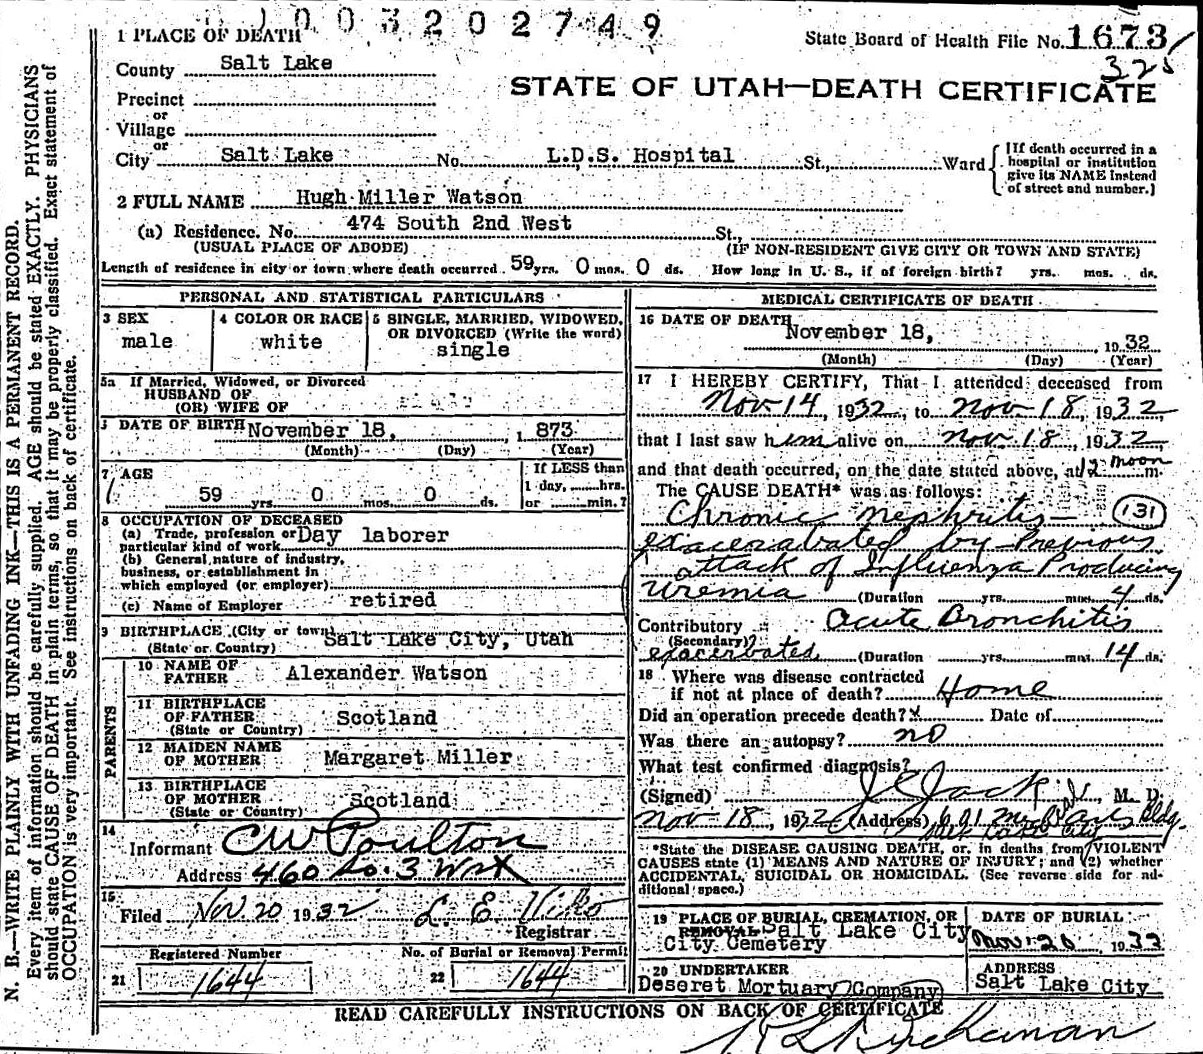 1003202749
1 PLACE OF DEATH
State Board of Health File No. 1673
325
County Salt Lake
STATE OF UTAH—DEATH CERTIFICATE
Precinct
or
Village
or
City Salt Lake No. L.D.S. Hospital St., Ward
[If death occurred in a hospital or institution give its NAME instead of street and number.]
2 FULL NAME Hugh Miller Watson
(a) Residence. No. 474 South 2nd West St.,
(USUAL PLACE OF ABODE) (IF NON-RESIDENT GIVE CITY OR TOWN AND STATE)
Length of residence in city or town where death occurred 59 yrs. 0 mos. 0 ds. How long in U. S., if of foreign birth? yrs. mos. ds.
PERSONAL AND STATISTICAL PARTICULARS
3 SEX
male
4 COLOR OR RACE
white
5 SINGLE, MARRIED, WIDOWED,
OR DIVORCED (Write the word)
single
5a If Married, Widowed, or Divorced
HUSBAND OF
(OR) WIFE OF
DATE OF BIRTH November 18, 1 873
(Month) (Day) (Year)
7 AGE
59 yrs. 0 mos. 0 ds.
If LESS than
1 day, hrs.
or min.?
8 OCCUPATION OF DECEASED
(a) Trade, profession or
particular kind of work Day laborer
(b) General nature of industry,
business, or establishment in
which employed (or employer)
(c) Name of Employer retired
9 BIRTHPLACE (City or town)
(State or Country) Salt Lake City, Utah
PARENTS
10 NAME OF
FATHER Alexander Watson
11 BIRTHPLACE
OF FATHER Scotland
(State or Country)
12 MAIDEN NAME
OF MOTHER Margaret Miller
13 BIRTHPLACE
OF MOTHER Scotland
(State or Country)
14
Informant CW Poulton
Address 460 So. 3 West
15
Filed Nov. 20 1932 L. E.
Registrar
Registered Number
21 1644
No. of Burial or Removal Permit
22 1644
MEDICAL CERTIFICATE OF DEATH
16 DATE OF DEATH November 18, 1932
(Month) (Day) (Year)
17 I HEREBY CERTIFY, That I attended deceased from
Nov 14, 1932, to Nov 18, 1932
that I last saw him alive on Nov. 18, 1932
and that death occurred, on the date stated above, at 12 noon m.
The CAUSE DEATH* was as follows:
Chronic nephritis— 131
exacerabated by Previous
attack of Influenza Producing
Uremia (Duration yrs. mos. 4 ds.
Contributory Acute Bronchitis
(Secondary)?
exacerbated (Duration yrs. mos. 14 ds.
18 Where was disease contracted
if not at place of death? Home
Did an operation precede death? x Date of
Was there an autopsy? no
What test confirmed diagnosis?
(Signed) Jack, M. D.
Nov 18, 1932 (Address) Bldg.
Salt Lake City
*State the DISEASE CAUSING DEATH, or, in deaths from VIOLENT
CAUSES state (1) MEANS AND NATURE OF INJURY; and (2) whether
ACCIDENTAL, SUICIDAL OR HOMICIDAL. (See reverse side for ad-
ditional space.)
19 PLACE OF BURIAL, CREMATION, OR
REMOVAL Salt Lake City
City Cemetery
DATE OF BURIAL
Nov. 20, 1932
20 UNDERTAKER
Deseret Mortuary Company
ADDRESS
Salt Lake City
READ CAREFULLY INSTRUCTIONS ON BACK OF CERTIFICATE
Buchanan
N. B.—WRITE PLAINLY WITH UNFADING INK—THIS IS A PERMANENT RECORD.
Every item of information should be carefully supplied. AGE should be stated EXACTLY. PHYSICIANS
should state CAUSE OF DEATH in plain terms, so that it may be properly classified. Exact statement of
OCCUPATION is very important. See instructions on back of certificate.